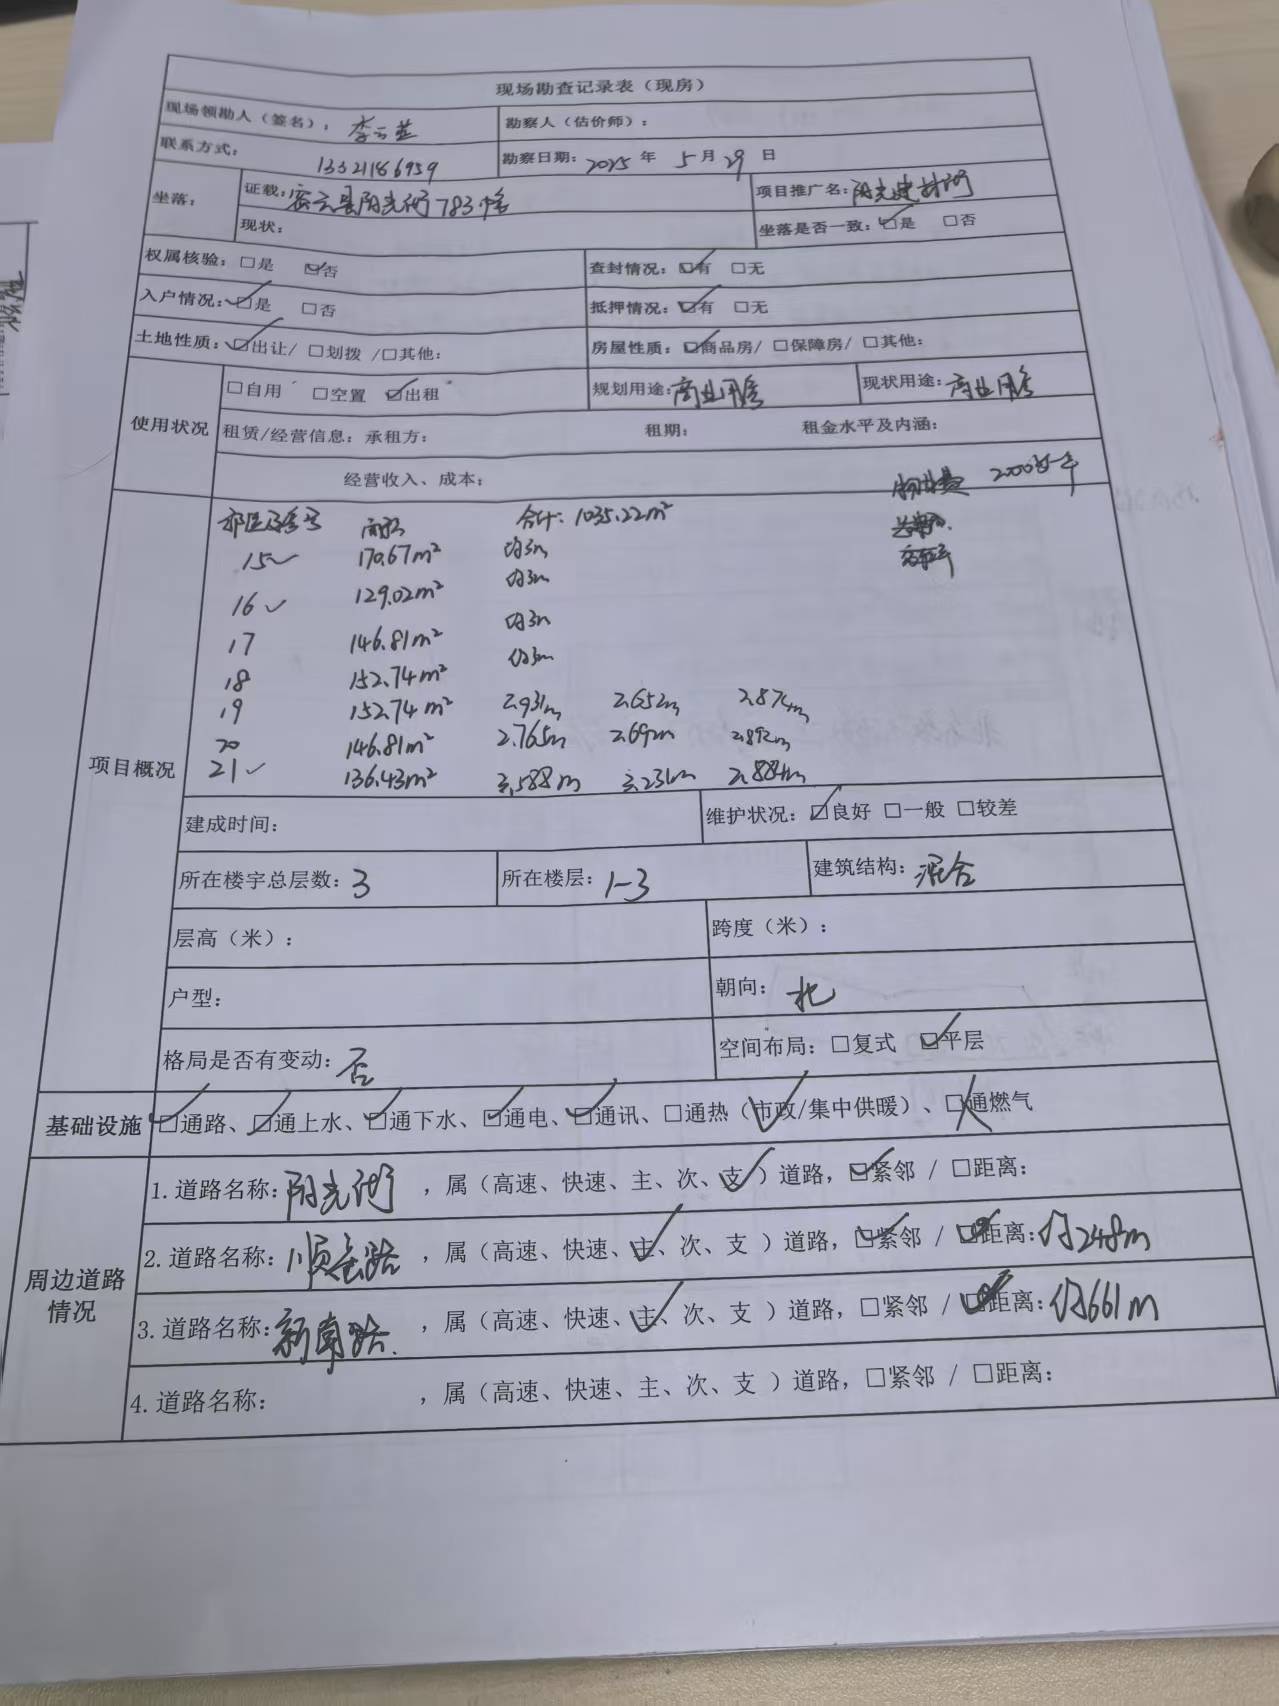 现场勘查记录表（现房）
现场领勘人（签名）： 李云芝 勘察人（估价师）：
联系方式： 13321186959 勘察日期：2025 年 5 月 29 日
坐落： 证载：密云县阳光街783幢 项目推广名：阳光建材街
现状： 坐落是否一致：☑是 □否
权属核验：□是 ☑否 查封情况：☑有 □无
入户情况：☑是 □否 抵押情况：☑有 □无
土地性质：☑出让/ □划拨 /□其他： 房屋性质：☑商品房/ □保障房/ □其他：
使用状况 □自用 □空置 ☑出租 规划用途：商业用房 现状用途：商业用房
租赁/经营信息：承租方： 租期： 租金水平及内涵：
经营收入、成本： 物业费 2000块一年
项目概况
面积 合计：1035.22m²
15✓ 170.67m² 约3m
16✓ 129.02m² 约3m
17 146.81m² 约3m
18 152.74m² 约3m
19 152.74m² 2.931m 2.652m 2.874m
20 146.81m² 2.765m 2.69m 2.892m
21✓ 136.43m² 3.588m 3.231m 2.884m
建成时间： 维护状况：☑良好 □一般 □较差
所在楼宇总层数：3 所在楼层：1-3 建筑结构：混合
层高（米）： 跨度（米）：
户型： 朝向：北
格局是否有变动：否 空间布局：□复式 ☑平层
基础设施 ☑通路、☑通上水、☑通下水、☑通电、☑通讯、□通热（市政/集中供暖）、□通燃气
周边道路情况
1.道路名称：阳光街 ，属（高速、快速、主、次、支 ）道路，☑紧邻 / □距离：
2.道路名称：顺 路 ，属（高速、快速、主、次、支 ）道路，☑紧邻 / ☑距离：约248m
3.道路名称：新南路 ，属（高速、快速、主、次、支 ）道路，□紧邻 / ☑距离：约661m
4.道路名称： ，属（高速、快速、主、次、支 ）道路，□紧邻 / □距离：